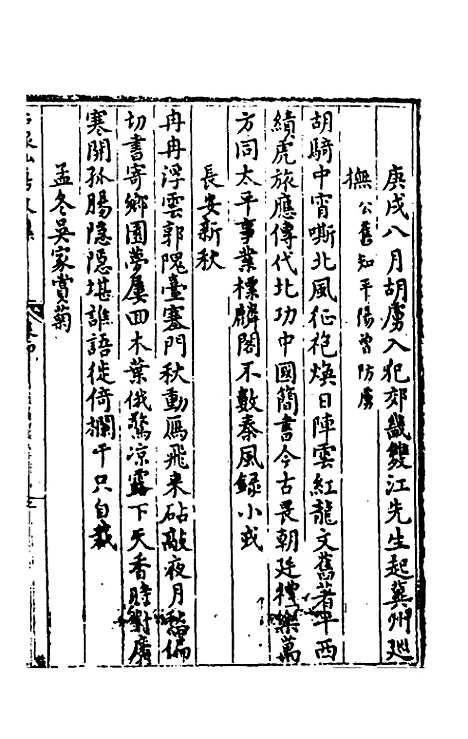 庚戌八月胡虜入犯郊畿雙江先生起冀州廵
撫公舊知平陽曾防虜
胡騎中宵嘶北風征袍煥日陣雲紅龍文舊著平西
績虎旅應傳代北功中國簡書今古畏朝廷禮樂萬
方同太平事業標麟閣不數秦風錄小戎
長安新秋
冉冉浮雲郭隗臺塞門秋動鴈飛来砧敲夜月偏
切書寄鄉園夢屢回木葉俄驚凉露下天香時對廣
寒開孤腸隱隱堪誰語徙倚欄干只自裁
孟冬吳家賞菊